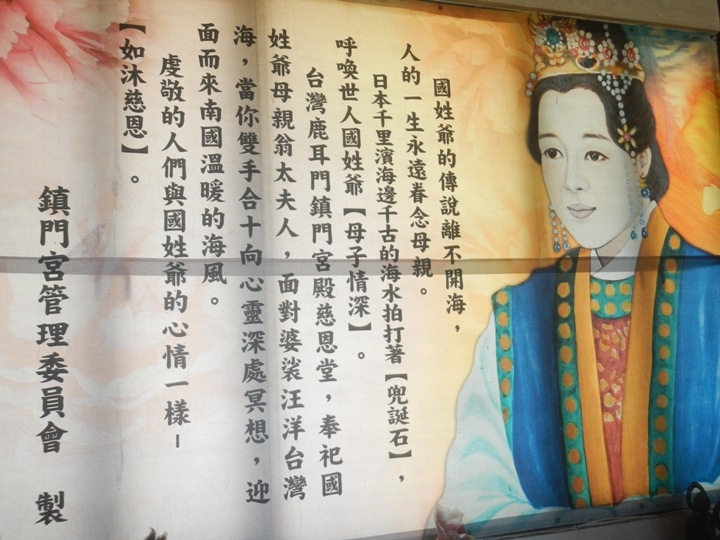 國姓爺的傳說離不開海，
人的一生永遠眷念母親。
日本千里濱海邊千古的海水拍打著【兜誕石】，
呼喚世人國姓爺【母子情深】。
台灣鹿耳門鎮門宮殿慈恩堂，奉祀國
姓爺母親翁太夫人，面對婆裟汪洋台灣
海，當你雙手合十向心靈深處冥想，迎
面而來南國溫暖的海風。
虔敬的人們與國姓爺的心情一樣－
【如沐慈恩】。
鎮門宮管理委員會 製